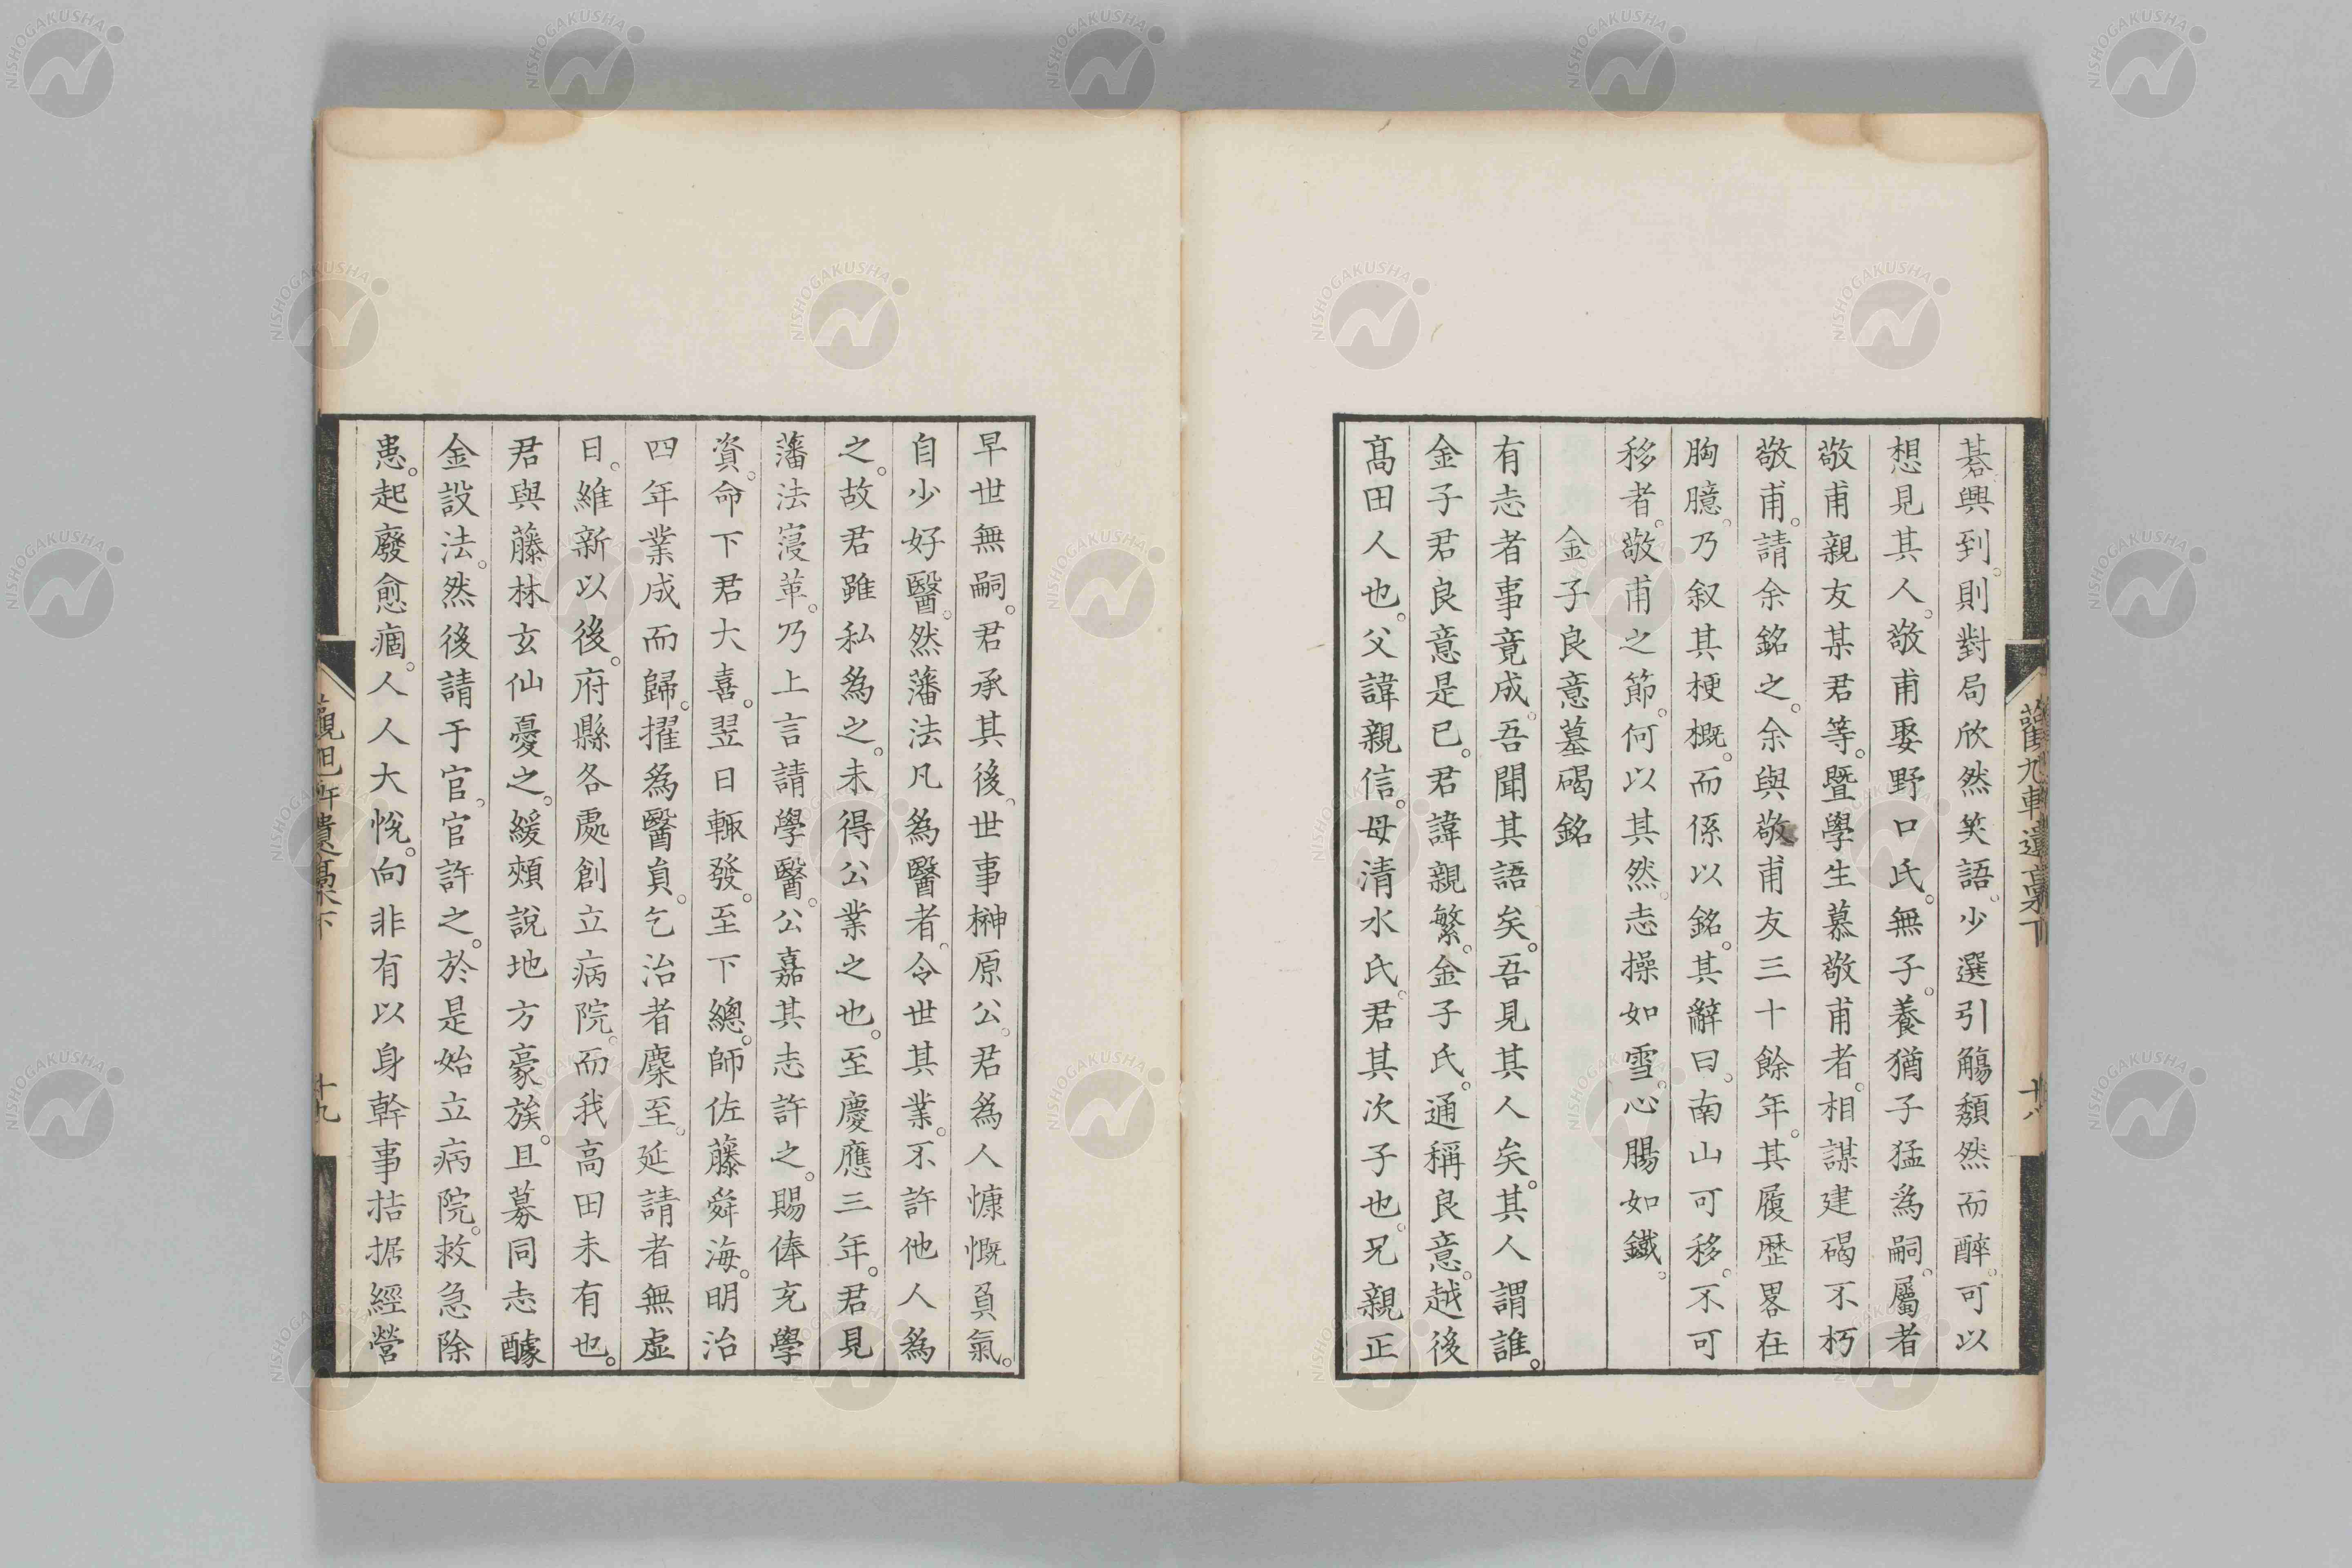 碁興到。則對局欣然笑語。少選引觴頽然而醉。可以
想見其人。敬甫娶野口氏。無子。養猶子猛爲嗣。屬者
敬甫親友某君等。曁學生慕敬甫者。相謀建碣不朽
敬甫。請余銘之。余與敬甫友三十餘年。其履歴畧在
胸臆。乃叙其梗概。而係以銘。其辭曰。南山可移。不可
移者。敬甫之節。何以其然。志操如雪。心腸如鐵。
金子良意墓碣銘
有志者事竟成。吾聞其語矣。吾見其人矣。其人謂誰。
金子君良意是已。君諱親繁。金子氏。通稱良意。越後
髙田人也。父諱親信。母清水氏。君其次子也。兄親正
早世無嗣。君承其後。世事榊原公。君爲人慷慨負氣。
自少好醫。然藩法凡爲醫者。令世其業。不許他人爲
之。故君雖私爲之。未得公業之也。至慶應三年。君見
藩法寖革。乃上言請學醫。公嘉其志許之。賜俸充學
資。命下君大喜。翌日輙發。至下總。師佐藤舜海。明治
四年業成而歸。擢爲醫員。乞治者麇至。延請者無虚
日。維新以後。府縣各處創立病院。而我高田未有也。
君與藤林玄仙憂之。緩頰說地方豪族。且募同志醵
金設法。然後請于官。官許之。於是始立病院。救急除
患。起廢愈痼。人人大悅。向非有以身幹事拮据經營
觀旭軒遺稾下
十八
觀旭軒遺稾下
十九
NISHOGAKUSHA